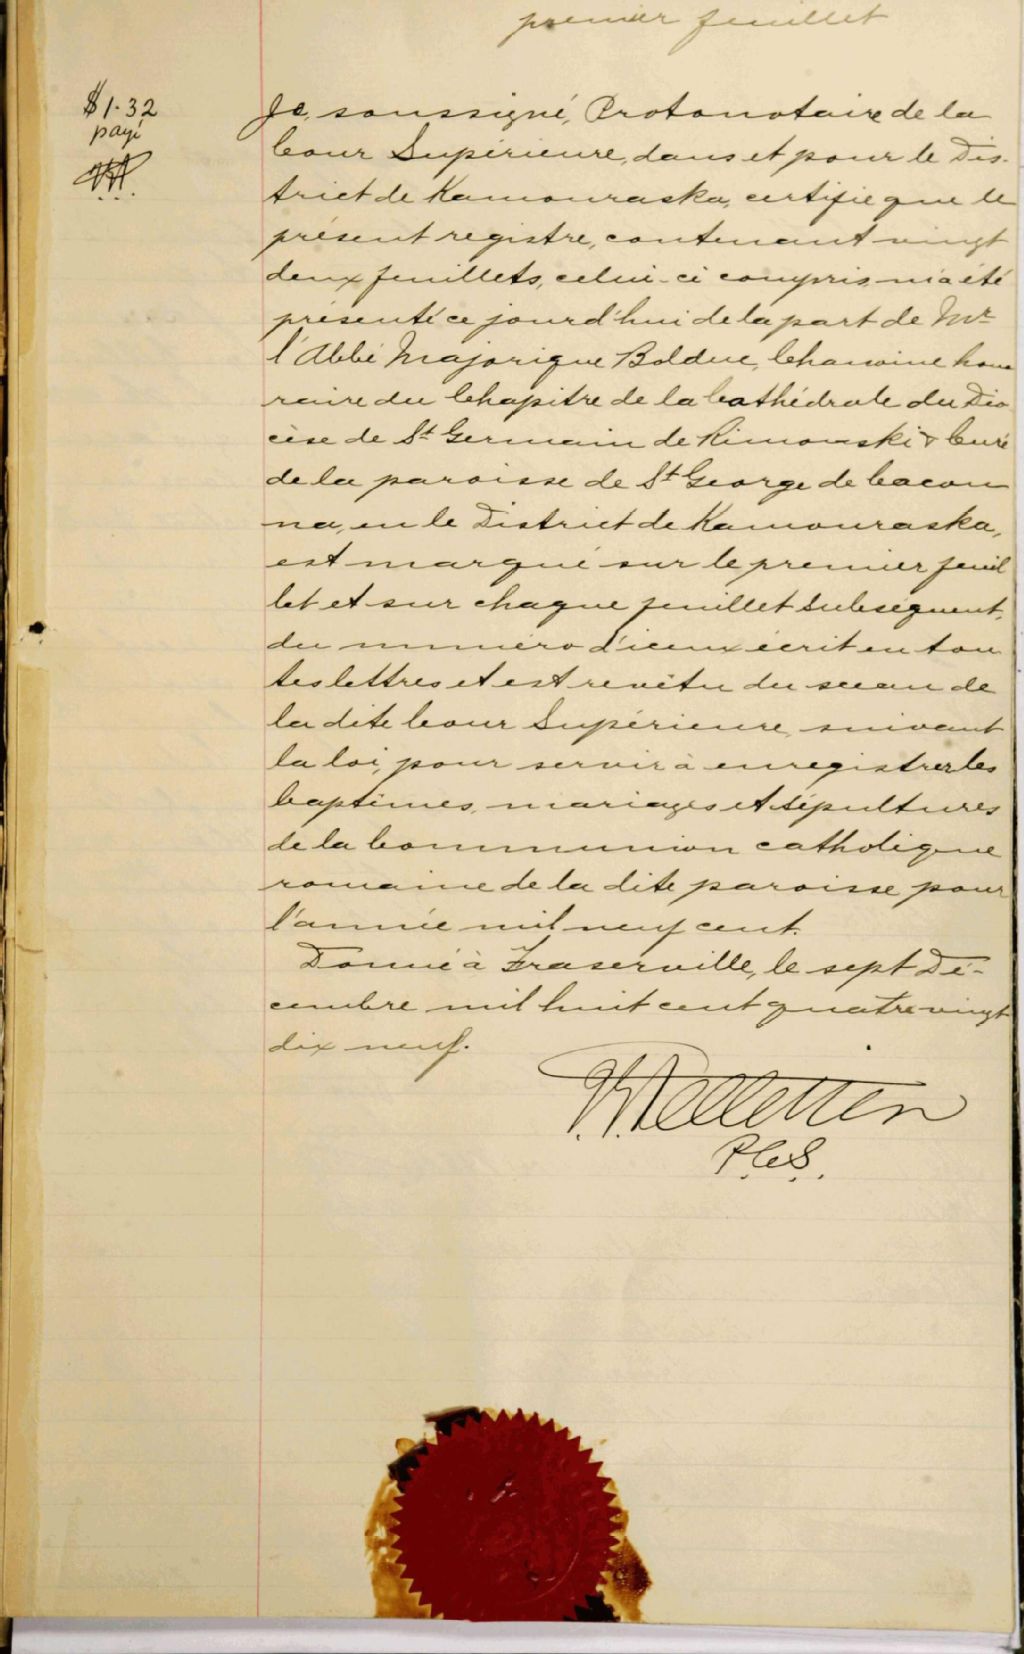 premier feuillet
$1.32
payé
Je, soussigné, Protonotaire de la
Cour Supérieure, dans et pour le Dis-
trict de Kamouraska, certifie que le
présent registre, contenant vingt
deux feuillets, celui-ci compris, m'a été
présenté ce jourd'hui de la part de Mr
l'Abbé Majorique Bolduc, Chanoine hono
raire du Chapitre de la Cathédrale du Dio
cèse de St Germain de Rimouski & Curé
de la paroisse de St George de Cacou
na, en le District de Kamouraska,
est marqué sur le premier feuil
let et sur chaque feuillet subséquent,
du numéro d'iceux écrit en tou
tes lettres et est revêtu du sceau de
la dite Cour Supérieure, suivant
la loi, pour servir à enregistrer les
baptêmes, mariages et sépultures
de la Communion catholique
romaine de la dite paroisse pour
l'année mil neuf cent.
Donné à Fraserville, le sept Dé-
cembre mil huit cent quatre vingt
dix neuf.
Pelletier
P.C.S.